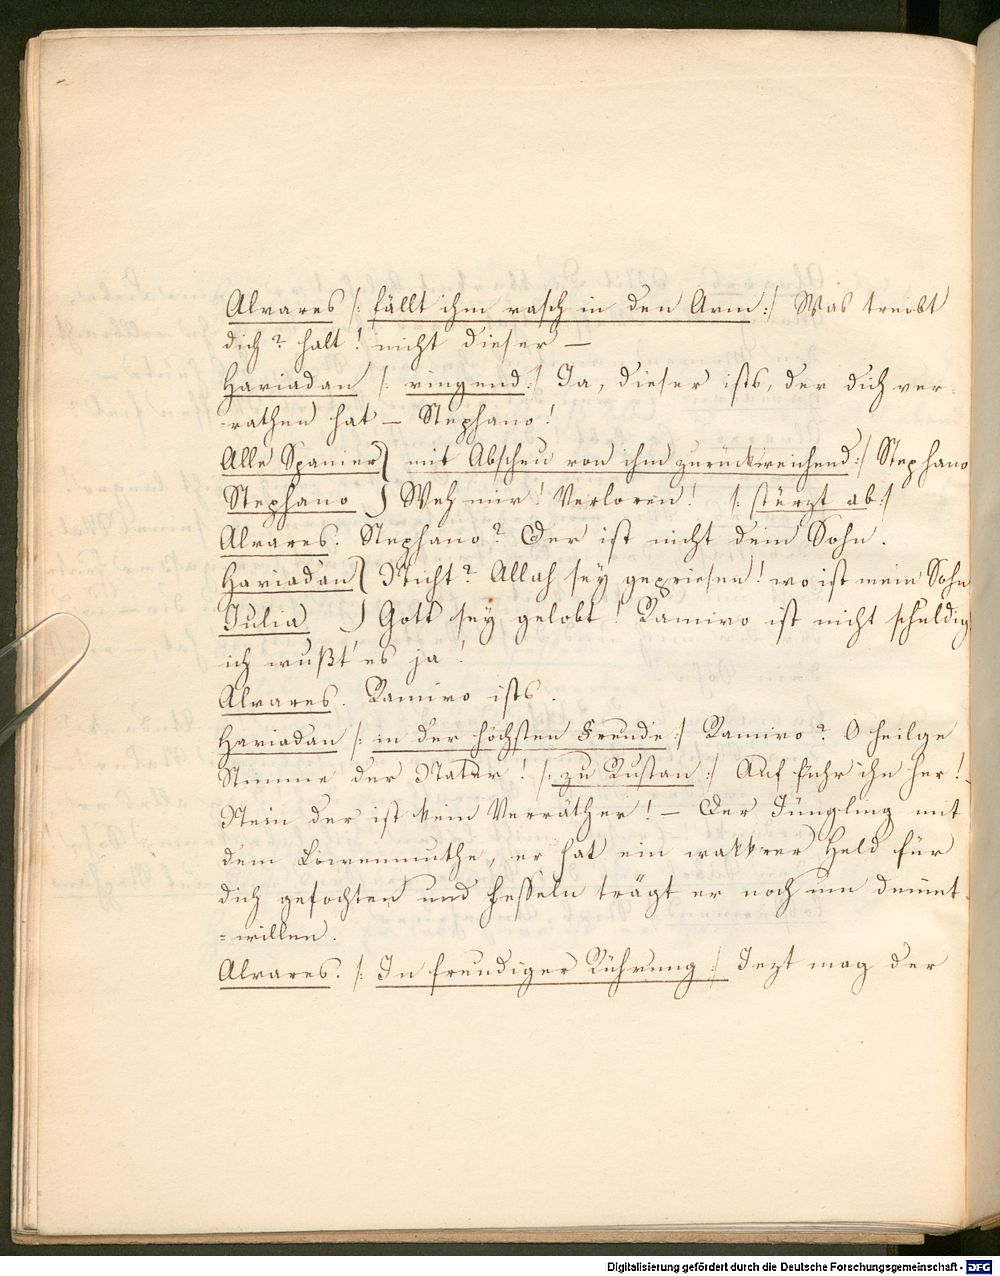 Alvares /: fällt ihm rasch in den Arm :/ Was treibt
dich? halt! nicht dieser —
Hariadan /: ringend :/ Ja, dieser ists, der dich ver-
-rathen hat — Stephano!
Alle Spanier} mit Abscheu von ihm zurückweichend :/ Stephano
Stephano } Weh mir! Verloren! /: stürzt ab :/
Alvares. Stephano? Der ist nicht dein Sohn.
Hariadan} Nicht? Allah sey gepriesen! wo ist mein Sohn
Julia } Gott sey gelobt! Ramiro ist nicht schuldig
ich wußt' es ja!
Alvares. Ramiro ists.
Hariadan /: in der höchsten Freude :/ Ramiro? O heilge
Stimme der Natur! /: zu Rustan :/ Auf führ ihn her!
Nein der ist kein Verräther! — Der Jüngling mit
dem Löwenmuthe, er hat ein wakkrer Held für
dich gefochten und Fesseln trägt er noch um deinet-
-willen.
Alvares. /: In freudiger Rührung :/ Jezt mag der
Digitalisierung gefördert durch die Deutsche Forschungsgemeinschaft - DFG